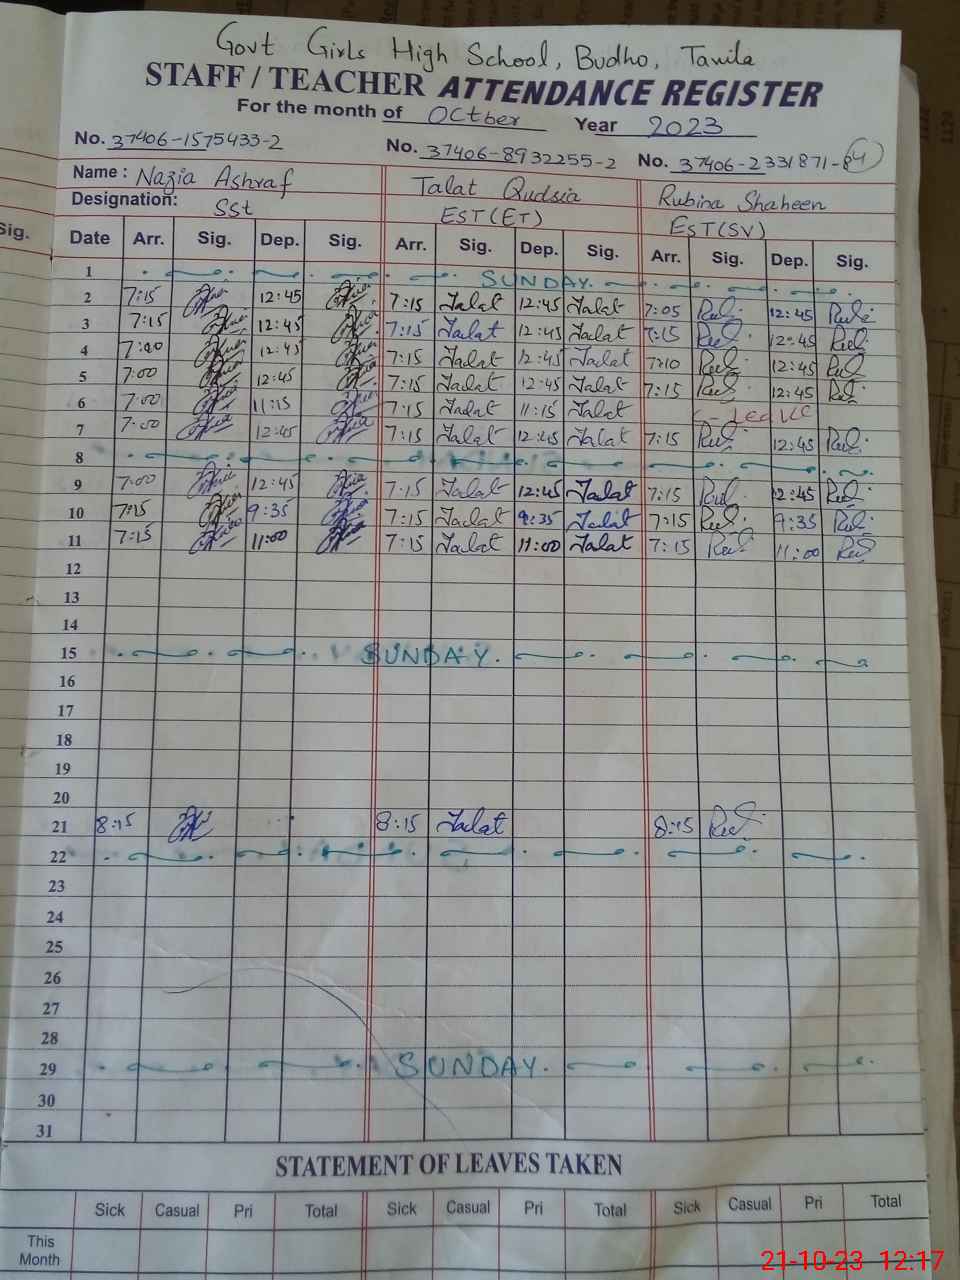 Govt Girls High School, Budho, Taxila
STAFF / TEACHER ATTENDANCE REGISTER
For the month of OCtber Year 2023
No. 37406-1575433-2 No. 37406-8932255-2 No. 37406-2331871-8 4
Name : Nazia Ashraf Talat Qudsia Rubina Shaheen
Designation: SSt EST(ET) EST(SV)
Sig.
Date Arr. Sig. Dep. Sig. Arr. Sig. Dep. Sig. Arr. Sig. Dep. Sig.
1 SUNDAY.
2 7:15 12:45 7:15 Talat 12:45 Talat 7:05 12:45
3 7:15 12:45 7:15 Talat 12:45 Talat 7:15 12:45
4 7:00 12:45 7:15 Talat 12:45 Talat 7:10 12:45
5 7:00 12:45 7:15 Talat 12:45 Talat 7:15 12:45
6 7:00 11:15 7:15 Talat 11:15 Talat C-Leave
7 7:00 12:45 7:15 Talat 12:45 Talat 7:15 12:45
8
9 7:00 12:45 7:15 Talat 12:45 Talat 7:15 12:45
10 7:15 9:35 7:15 Talat 9:35 Talat 7:15 9:35
11 7:15 11:00 7:15 Talat 11:00 Talat 7:15 11:00
12
13
14
15 SUNDAY.
16
17
18
19
20
21 8:15 8:15 Talat 8:15
22
23
24
25
26
27
28
29 SUNDAY.
30
31
STATEMENT OF LEAVES TAKEN
Sick Casual Pri Total Sick Casual Pri Total Sick Casual Pri Total
This
Month
21-10-23 12:17